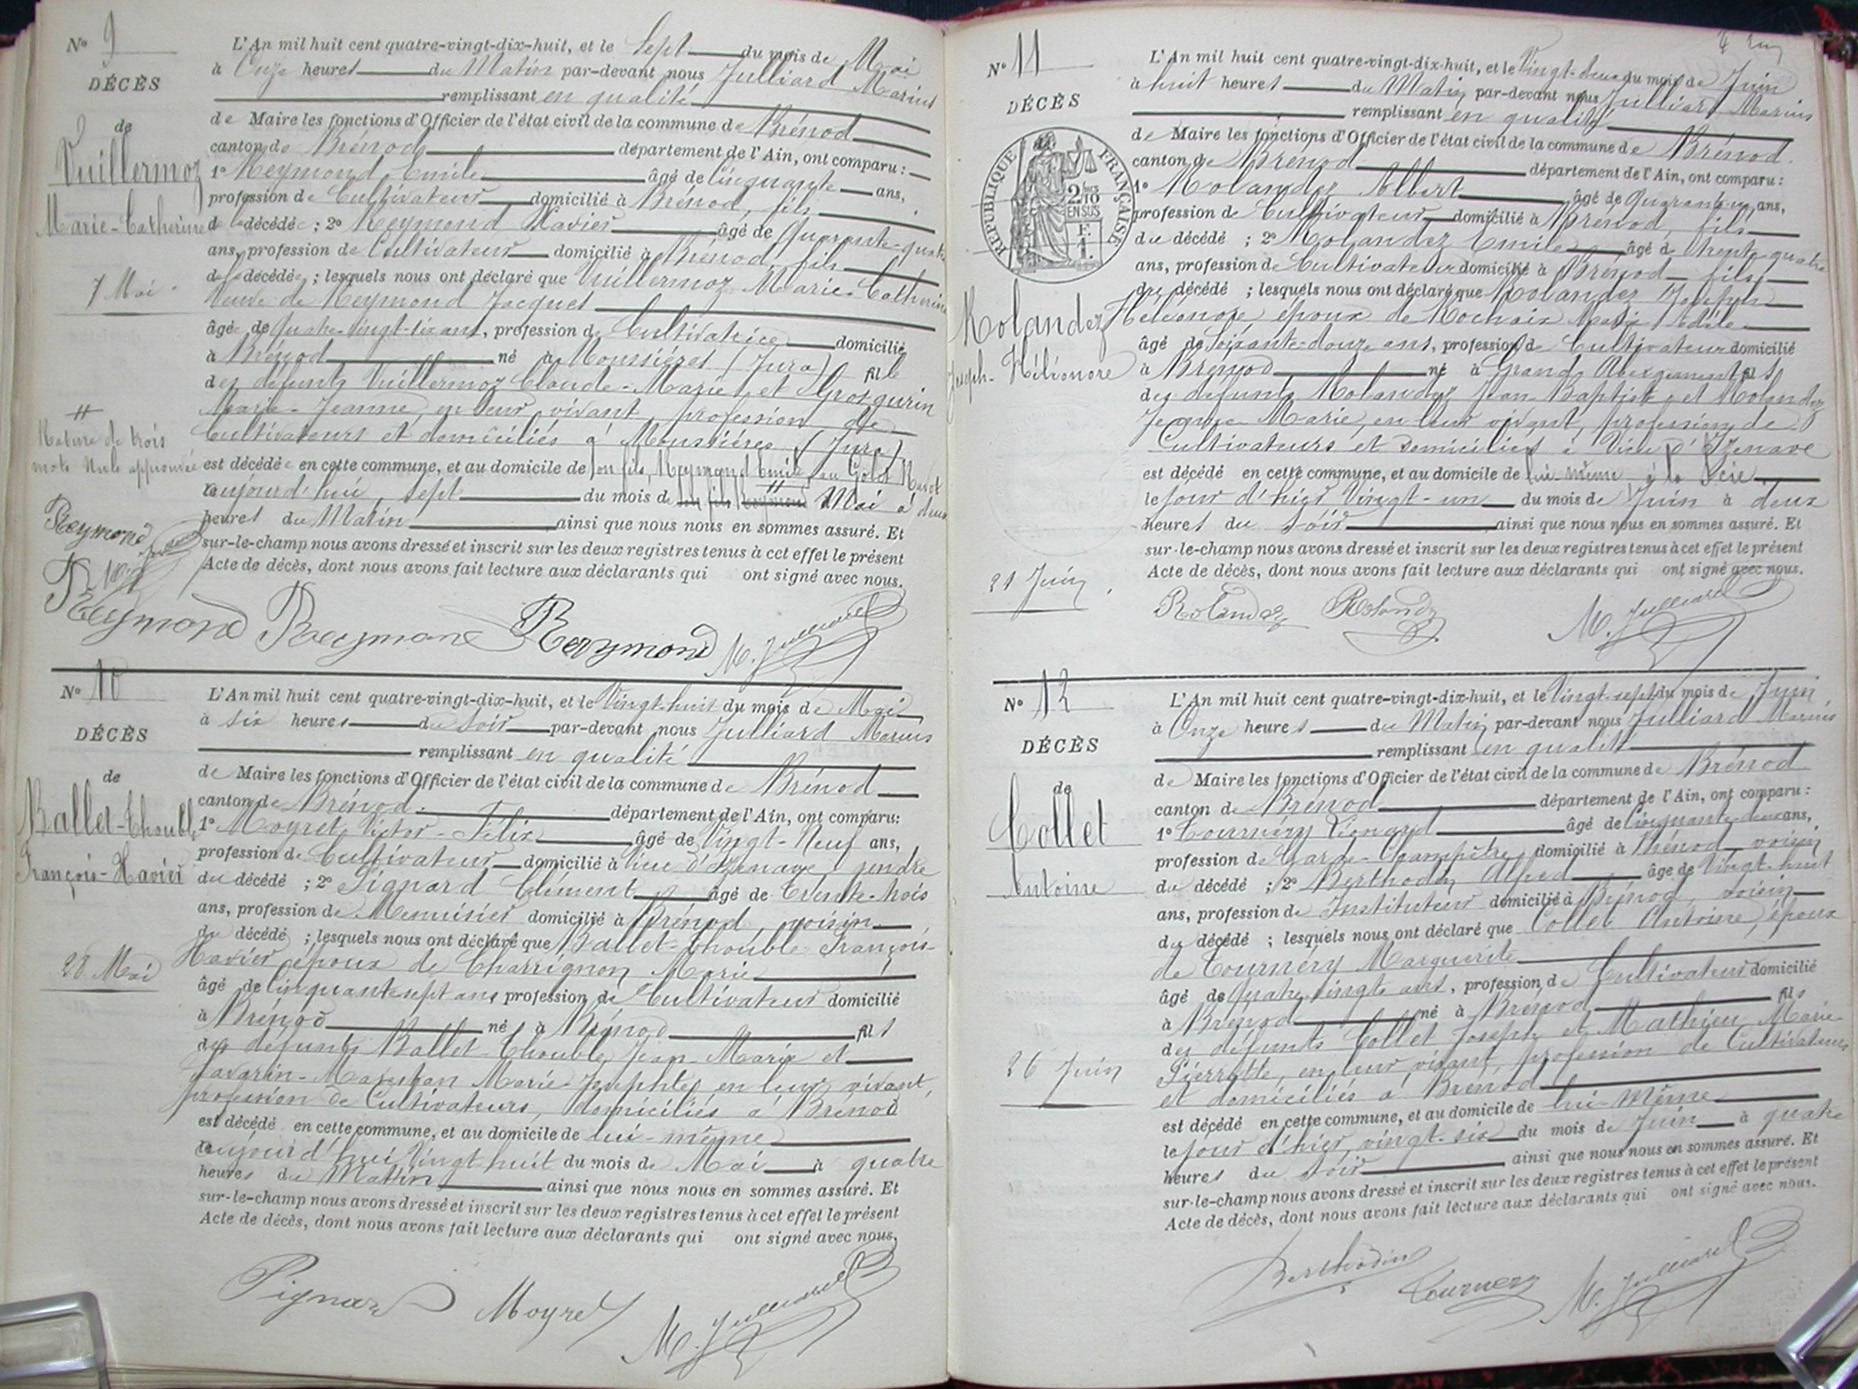 N° 9
DÉCÈS
de
Vuillermoz
Marie-Catherine
7 Mai
Rature de trois
mots nuls approuvée
L'An mil huit cent quatre-vingt-dix-huit, et le Sept du mois de Mai
à Onze heures du Matin par-devant nous Julliard Marius
remplissant en qualité
de Maire les fonctions d'Officier de l'état civil de la commune de Brénod
canton de Brénod département de l'Ain, ont comparu :
1° Reymond Emile âgé de Cinquante ans,
profession de Cultivateur domicilié à Brénod, fils
de la décédée ; 2° Reymond Xavier âgé de Quarante-quatre
ans, profession de Cultivateur domicilié à Brénod, fils
de la décédée ; lesquels nous ont déclaré que Vuillermoz Marie-Catherine
Veuve de Reymond Jacques
âgée de Quatre-vingt-six ans, profession de Cultivatrice domicilié
à Brénod né à Moussières (Jura) fille
des défunts Vuillermoz Claude-Marie et Grosgurin
Marie-Jeanne, en leur vivant, profession de
Cultivateurs et domiciliés à Moussières (Jura)
est décédée en cette commune, et au domicile de son fils, Reymond Emile au
aujourd'hui, sept du mois de Mai à deux
heures du Matin ainsi que nous nous en sommes assuré. Et
sur-le-champ nous avons dressé et inscrit sur les deux registres tenus à cet effet le présent
Acte de décès, dont nous avons fait lecture aux déclarants qui ont signé avec nous.
Reymond
Reymond Reymond Reymond M. Julliard
N° 10
DÉCÈS
de
Ballet-Thouble
François-Xavier
28 Mai
L'An mil huit cent quatre-vingt-dix-huit, et le Vingt-huit du mois de Mai
à six heures du soir par-devant nous Julliard Marius
remplissant en qualité
de Maire les fonctions d'Officier de l'état civil de la commune de Brénod
canton de Brénod département de l'Ain, ont comparu :
1° Moyret Victor-Félix âgé de Vingt-Neuf ans,
profession de Cultivateur domicilié à Vieu d'Izenave, gendre
du décédé ; 2° Pignard Clément âgé de Trente-trois
ans, profession de Menuisier domicilié à Brénod, voisin
du décédé ; lesquels nous ont déclaré que Ballet-Thouble François-
Xavier époux de Charrignon Marie
âgé de Cinquante sept ans profession de Cultivateur domicilié
à Brénod né à Brénod fils
des défunts Ballet-Thouble Jean-Marie et
Savarin-Marestan Marie-Josephte, en leur vivant,
profession de Cultivateurs, domiciliés à Brénod
est décédé en cette commune, et au domicile de lui-même
aujourd'hui Vingt huit du mois de Mai à quatre
heures du Matin ainsi que nous nous en sommes assuré. Et
sur-le-champ nous avons dressé et inscrit sur les deux registres tenus à cet effet le présent
Acte de décès, dont nous avons fait lecture aux déclarants qui ont signé avec nous.
Pignard Moyret M. Julliard
N° 11
DÉCÈS
RÉPUBLIQUE FRANÇAISE
2/10
EN SUS
Rolandez
Joseph-Hélionore
21 Juin
L'An mil huit cent quatre-vingt-dix-huit, et le Vingt-deux du mois de Juin
à huit heures du Matin par-devant nous Julliard Marius
remplissant en qualité
de Maire les fonctions d'Officier de l'état civil de la commune de Brénod
canton de Brénod département de l'Ain, ont comparu :
1° Rolandez Albert âgé de Quarante ans,
profession de Cultivateur domicilié à Brénod, fils
du décédé ; 2° Rolandez Emile âgé de trente-quatre
ans, profession de Cultivateur domicilié à Brénod fils
du décédé ; lesquels nous ont déclaré que Rolandez Joseph
époux de Rochaix Marie
âgé de Soixante-douze ans, profession de Cultivateur domicilié
à Brénod né à Grand Abergement fils
des défunts Rolandez Jean-Baptiste et Rolandez
Jeanne Marie, en leur vivant, profession de
Cultivateurs et domiciliés à Vieu d'Izenave
est décédé en cette commune, et au domicile de lui même
le jour d'hier Vingt-un du mois de Juin à deux
heures du soir ainsi que nous nous en sommes assuré. Et
sur-le-champ nous avons dressé et inscrit sur les deux registres tenus à cet effet le présent
Acte de décès, dont nous avons fait lecture aux déclarants qui ont signé avec nous.
Rolandez Rolandez M. Julliard
N° 12
DÉCÈS
de
Collet
Antoine
26 Juin
L'An mil huit cent quatre-vingt-dix-huit, et le Vingt-sept du mois de Juin
à Onze heures du Matin par-devant nous Julliard Marius
remplissant en qualité
de Maire les fonctions d'Officier de l'état civil de la commune de Brénod
canton de Brénod département de l'Ain, ont comparu :
1° Tournéry Liénard âgé de Cinquante-deux ans,
profession de Garde-Champêtre domicilié à Brénod, voisin
du décédé ; 2° Berthodin Alfred âgé de Vingt-huit
ans, profession de Instituteur domicilié à Brénod, voisin
du décédé ; lesquels nous ont déclaré que Collet Antoine, époux
de Tournéry Marguerite
âgé de Quatre-vingts ans, profession de Cultivateur domicilié
à Brénod né à Brénod fils
des défunts Collet Joseph et Mathieu Marie-
Pierrette, en leur vivant, profession de Cultivateurs
et domiciliés à Brénod
est décédé en cette commune, et au domicile de lui-même
le jour d'hier, vingt-six du mois de Juin à quatre
heures du soir ainsi que nous nous en sommes assuré. Et
sur-le-champ nous avons dressé et inscrit sur les deux registres tenus à cet effet le présent
Acte de décès, dont nous avons fait lecture aux déclarants qui ont signé avec nous.
Berthodin Tournery M. Julliard